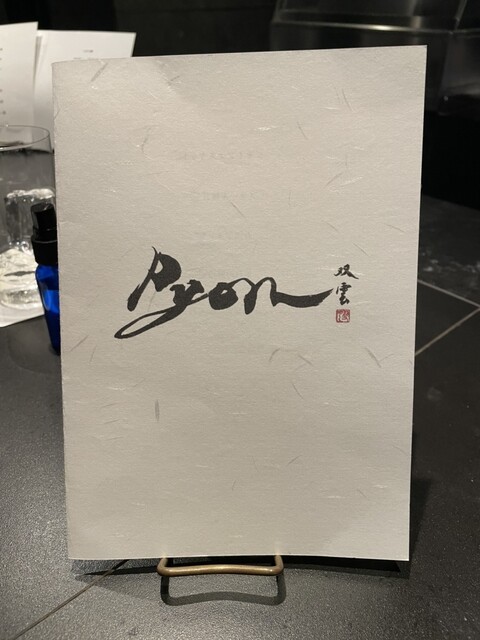 Pyon
双雲